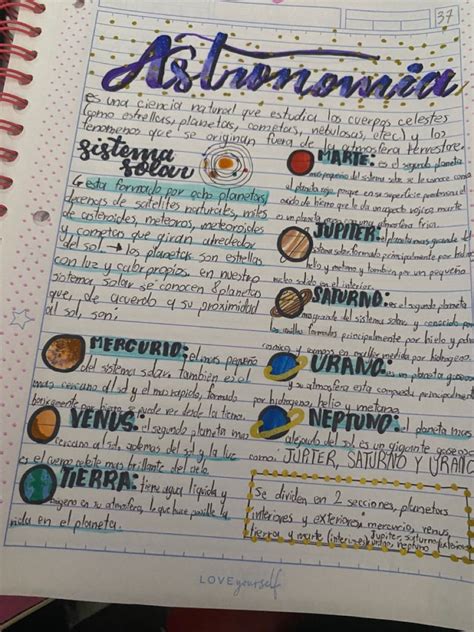 37
Astronomía
es una ciencia natural que estudia los cuerpos celestes
(como estrellas, planetas, cometas, nebulosas, etec) y los
fenomenos que se originan fuera de la atmosfera terrestre.
sistema
solar
esta formado por ocho planetas,
decenas de satelites naturales, miles
de asteroides, meteoros, meteoroides
y cometas que giran alrededor
del sol → los planetas son estrellas
con luz y propios. en nuestro
sistema solar se conocen 8 planetas
que, de acuerdo a su proximidad
al sol, son:
MERCURIO: el mas pequeño
del sistema solar. también es el
mas cercano al sol y el mas rapido, formado
se puede ver desde la tierra.
VENUS: el segundo planeta mas
cercano al sol, ademas del sol y la luz
es el cuerpo celeste mas brillante del cielo.
TIERRA: tiene agua liquida y
oxigeno en su atmosfera, lo que hace posible la
vida en el planeta.
MARTE: es el segundo planeta
mas pequeño del sistema solar. se le conoce como
el planeta rojo porque en su superficie predomina el
oxido de hierro que le da un aspecto rojizo. marte
es un planeta con una atmosfera fria.
JUPITER: el planeta mas grande del
sistema solar. formado principalmente por
helio y metano y tambien por un pequeño
nucleo solido en el interior.
SATURNO: es el segundo planeta
mas grande del sistema solar y conocido por
su anillo formado principalmente por hielo y polvo
por hidrogeno.
URANO: es un planeta gaseoso
y su atmosfera esta compuesta principalmente
hidrogeno, helio y metano.
NEPTUNO: el planeta mas
alejado del sol es un gigante gaseoso
como: JUPITER, SATURNO Y URANO
Se dividen en 2 secciones, planetas
interiores y exteriores, mercurio, venus,
tierra y marte (interiores) Jupiter, saturno
urano, neptuno
LOVE yourself